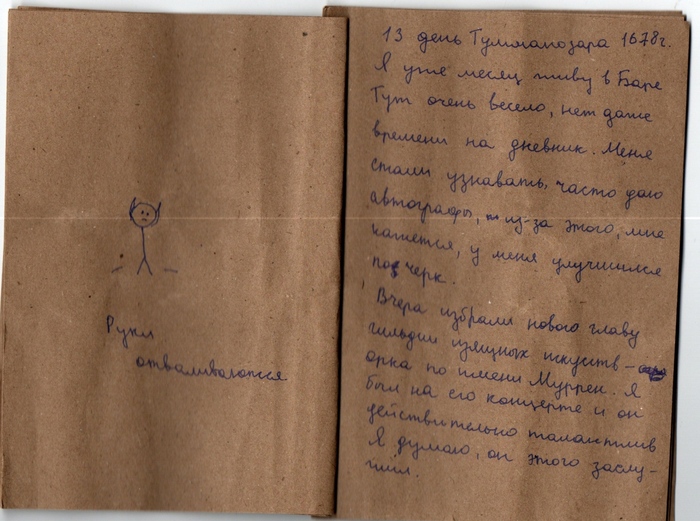 Руки
отваливаются
13 день Туммапозара 1678г.
Я уже месяц живу в Баре
Тут очень весело, нет даже
времени на дневник. Меня
стали узнавать, часто даю
автографы, из-за этого, мне
кажется, у меня улучшился
почерк.
Вчера избрали нового главу
гильдии изящных искуств -
орка по имени Муррен. Я
был на его концерте и он
действительно талантлив
Я думаю, он этого заслу-
жил.